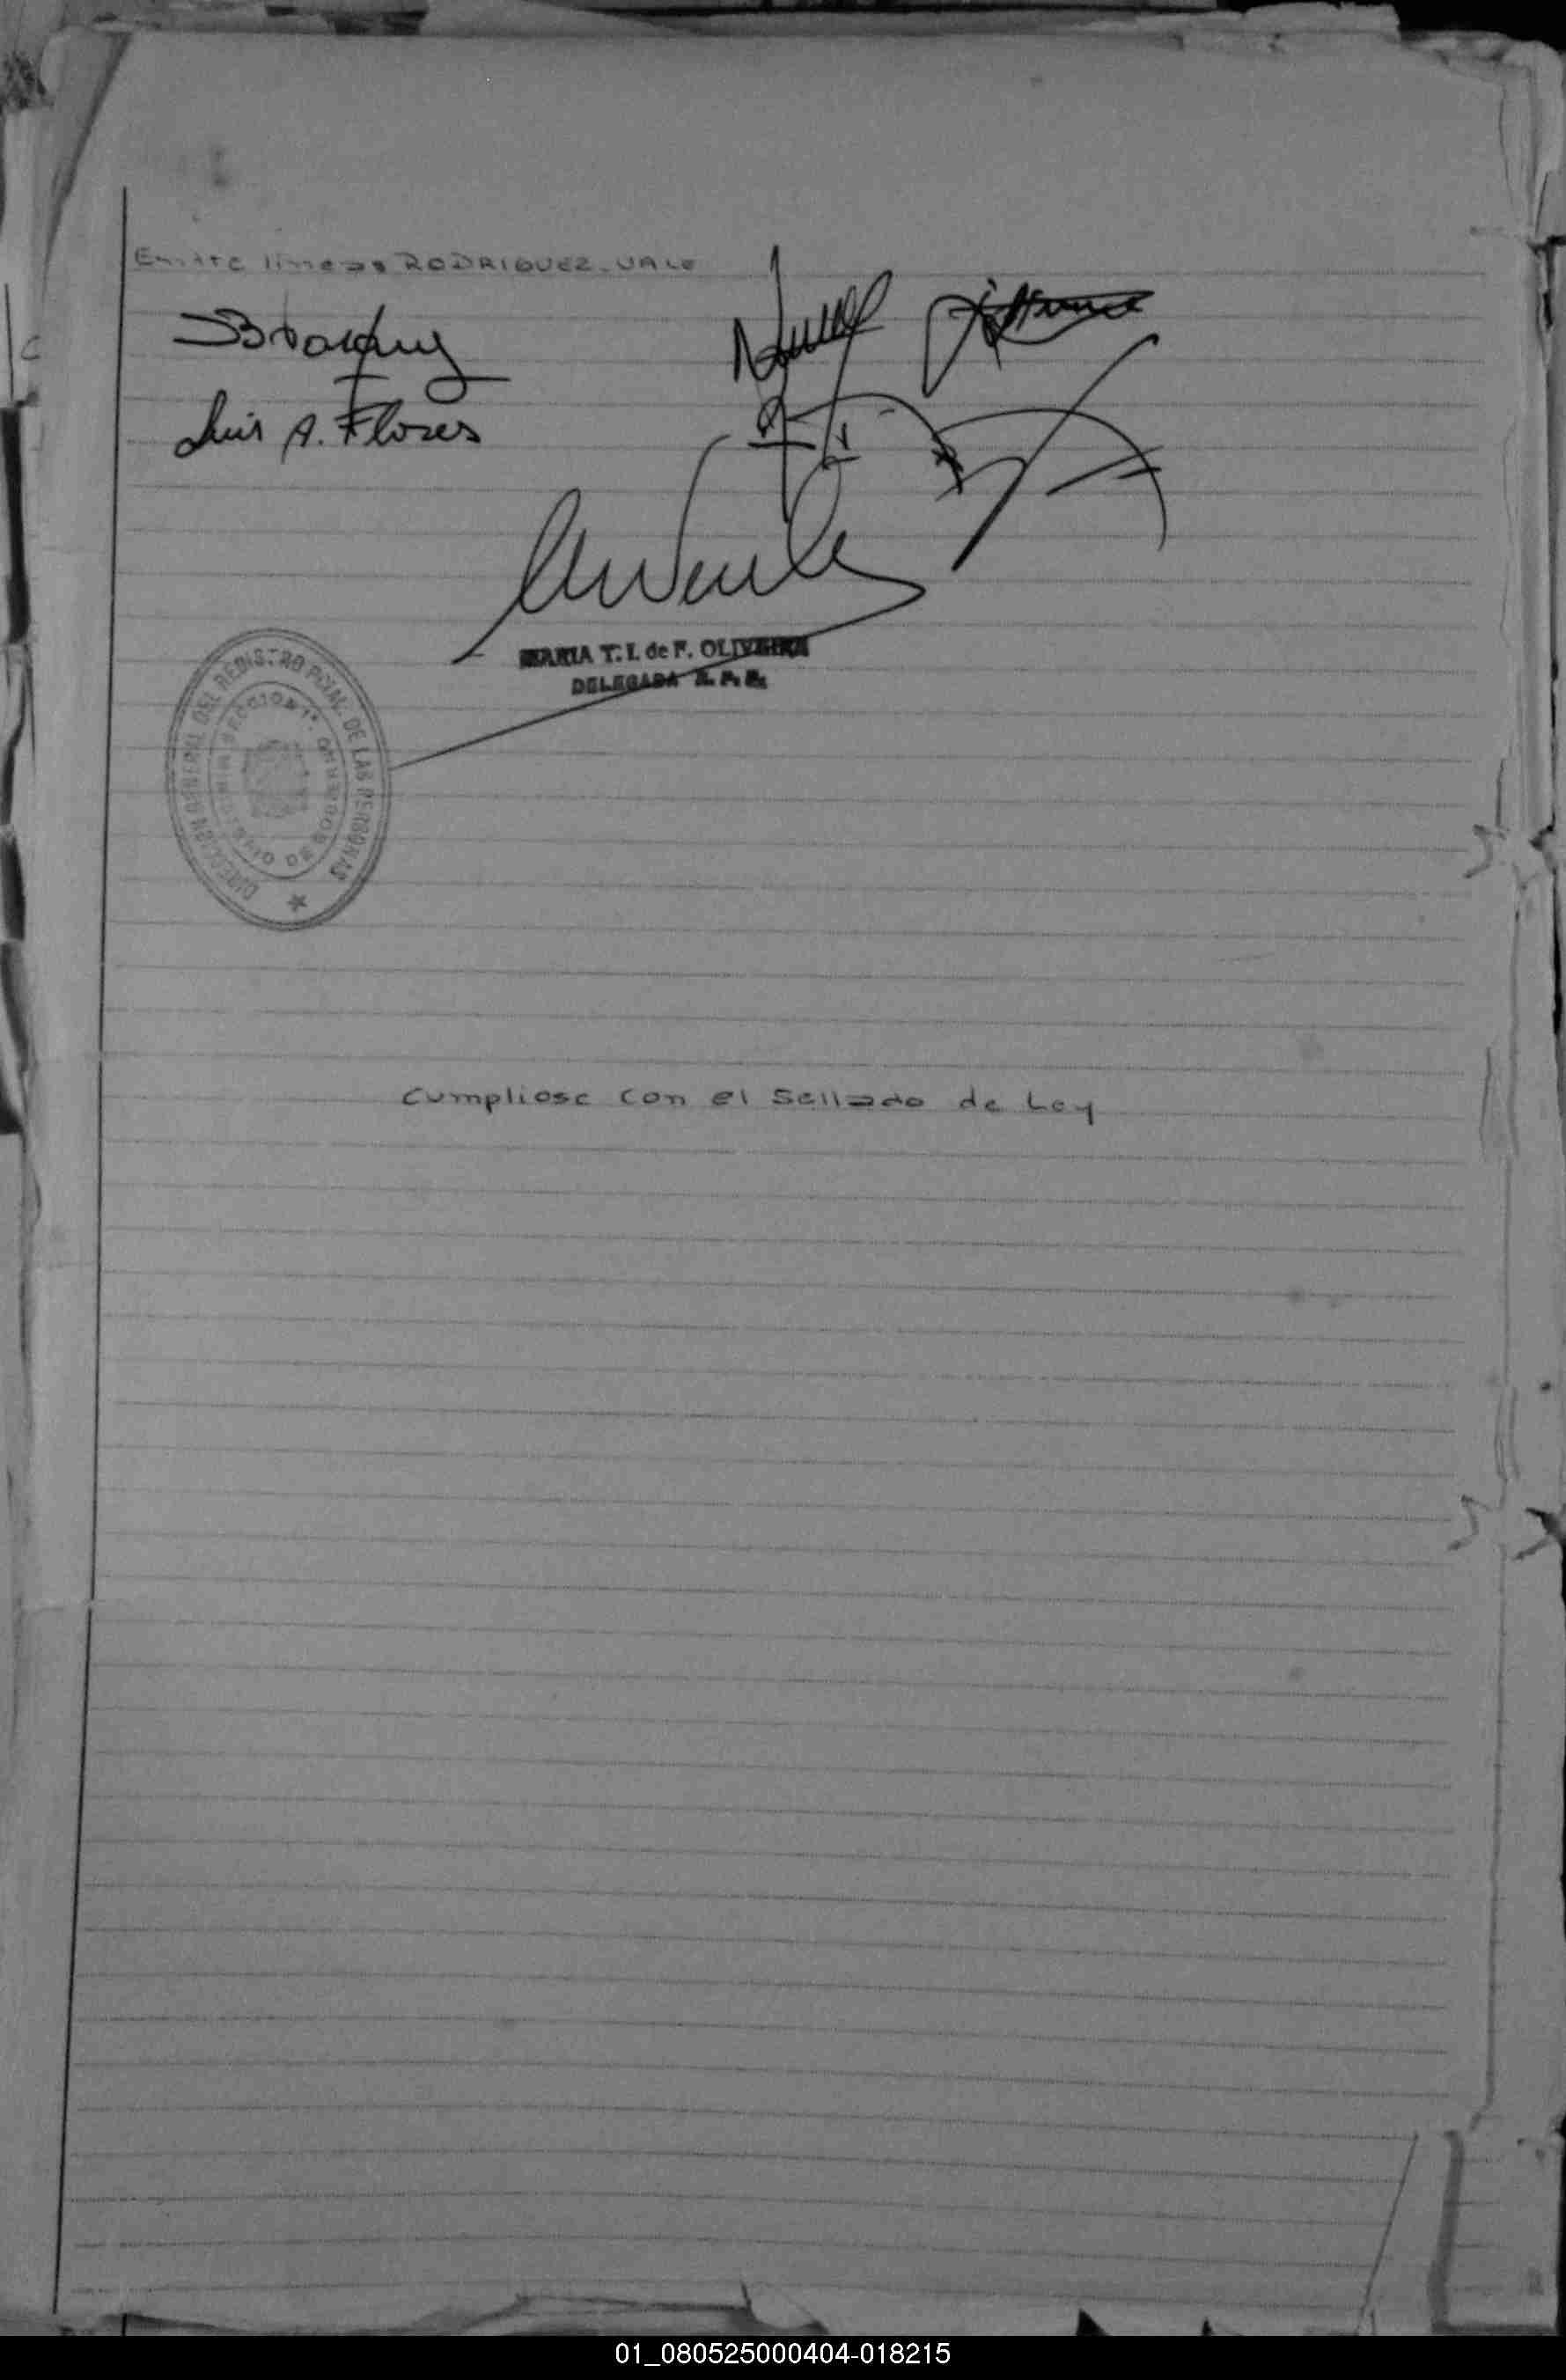 Entre lineas RODRIGUEZ - VALE
Luis A. Flores
MARIA T. I. de F. OLIVEIRA
DELEGADA R. P. P.
DIRECCION GENERAL DEL REGISTRO PCIAL. DE LAS PERSONAS
MINISTERIO DE GOBIERNO
Cumpliose con el Sellado de Ley
01_080525000404-018215